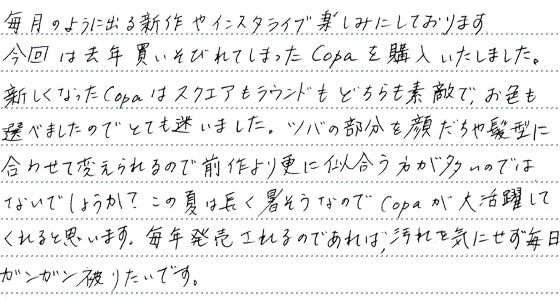 毎月のように出る新作やインスタライブ楽しみにしております
今回は去年買いそびれてしまったCopaを購入いたしました。
新しくなったCopaはスクエアもラウンドもどちらも素敵で、お色も
選べましたのでとても迷いました。ツバの部分を顔だちや髪型に
合わせて変えられるので前作より更に似合う方が多いのでは
ないでしょうか？この夏は長く暑そうなのでCopaが大活躍して
くれると思います。毎年発売されるのであれば、汚れを気にせず毎日
ガンガン被りたいです。